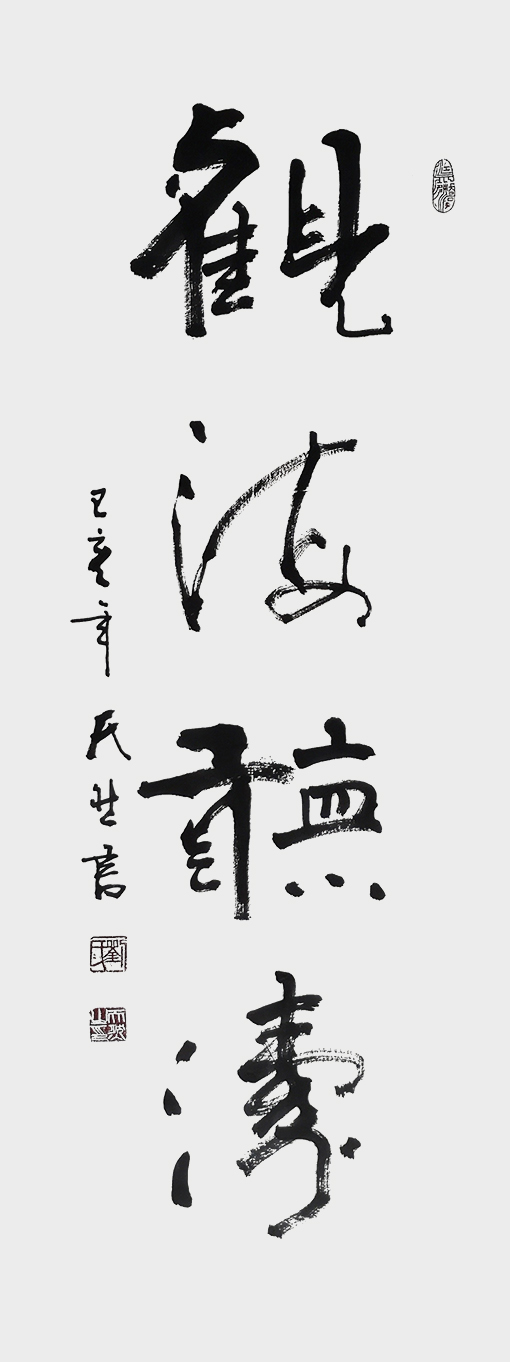 觀海聽濤
己亥年 民生書